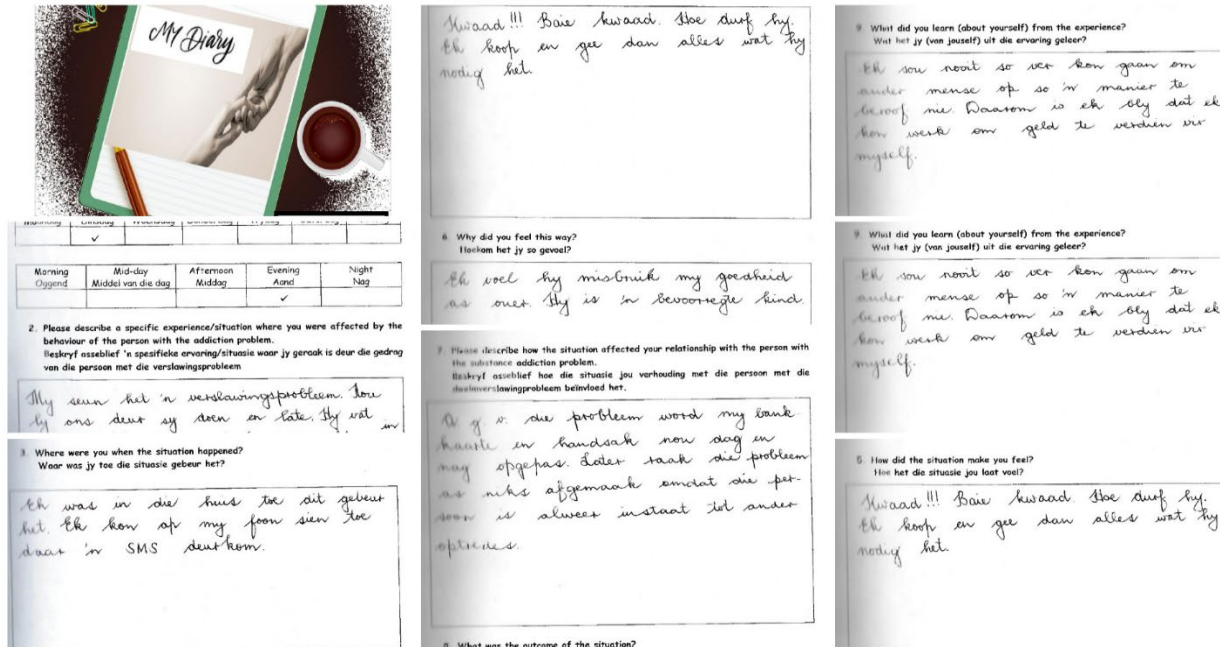 MY Diary
✓
Morning Mid-day Afternoon Evening Night
Oggend Middel van die dag Middag Aand Nag
✓
2. Please describe a specific experience/situation where you were affected by the
behaviour of the person with the addiction problem.
Beskryf asseblief 'n spesifieke ervaring/situasie waar jy geraak is deur die gedrag
van die persoon met die verslawingsprobleem
My seun het 'n verslawingsprobleem. Nou
ly ons deur sy doen en late. Hy vat
3. Where were you when the situation happened?
Waar was jy toe die situasie gebeur het?
Ek was in die huis toe dit gebeur
het. Ek kon op my foon sien toe
daar 'n SMS deurkom.
Kwaad!!! Baie kwaad. Hoe durf hy.
Ek koop en gee dan alles wat hy
nodig het.
6. Why did you feel this way?
Hoekom het jy so gevoel?
Ek voel hy misbruik my goedheid
as ouer. Hy is 'n bevooregte kind.
7. Please describe how the situation affected your relationship with the person with
the substance addiction problem.
Beskryf asseblief hoe die situasie jou verhouding met die persoon met die
verslawingprobleem beïnvloed het.
A. g. v. die probleem word my bank
kaarte en handsak nou dag en
nag opgepas. Later raak die probleem
as niks afgemaak omdat die per-
soon is alweer instaat tot ander
optredes.
8. What was the outcome of the situation?
9. What did you learn (about yourself) from the experience?
Wat het jy (van jouself) uit die ervaring geleer?
Ek sou nooit so ver kon gaan om
ander mense op so 'n manier te
beroof nie. Daarom is ek bly dat ek
kon werk om geld te verdien vir
myself.
9. What did you learn (about yourself) from the experience?
Wat het jy (van jouself) uit die ervaring geleer?
Ek sou nooit so ver kon gaan om
ander mense op so 'n manier te
beroof nie. Daarom is ek bly dat ek
kon werk om geld te verdien vir
myself.
5. How did the situation make you feel?
Hoe het die situasie jou laat voel?
Kwaad!!! Baie kwaad. Hoe durf hy.
Ek koop en gee dan alles wat hy
nodig het.